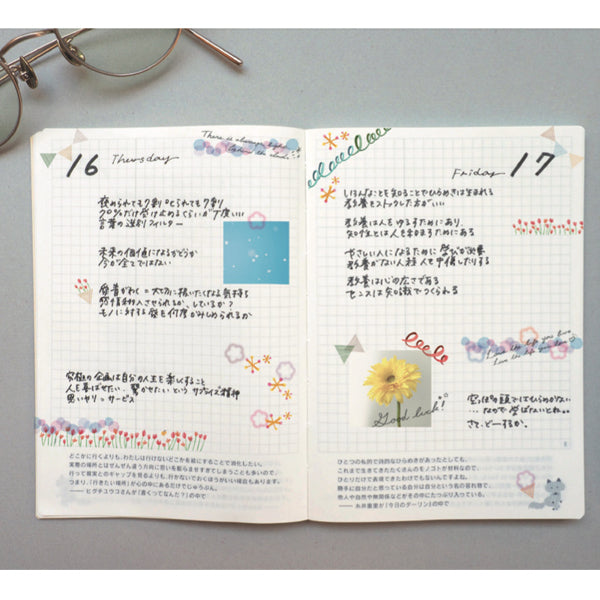 16 Thursday
There is always light
behind the clouds.
褒められても7割 叱られても7割
70%だけ受け止めるくらいが丁度いい
言葉の選別フィルター
未来の価値になるかどうか
今が全てではない
愛着がわく=大切に扱いたくなる気持ち
感情移入させられるか、しているか?
モノに対する愛を何度かみしめられるか
究極の企画は自分の人生を楽しくすること
人を喜ばせたい、驚かせたいという サプライズ精神
思いやり=サービス
どこかに行くよりも、わたしは行けないどこかを絵にすることで消化したい。
実際の場所とはぜんぜん違う方向に思いを膨らませすぎてしまうことも多いので、
行って現実とのギャップを見るよりも、行かないでおくほうがいい場合もあります。
つまり、「行きたい場所」が心の中にあるだけでじゅうぶん。
——ヒグチユウコさんが『書くってなんだ?』の中で
Friday 17
いろんなことを知ることでひらめきは生まれる
教養をストックした方がいい
教養は人をゆるすためにあり
知性とは人を守るためにある
やさしい人になるために 学びが必要
教養がない人程 人を批判したりする
教養は心の広さである
センスは知識でつくられる
Love the life you live.
Live the life you love.
Good luck!
空っぽの頭ではひらめかない
…なので 学ばたいとね。。
さて、どーするか。
ひとつの私的で詩的なひらめきがあったとしても、
これまで生きてきたたくさんのモノゴトが材料なので、
ひとりだけで表現できたわけでもないんですよね。
勝手に自分だと思っている自分は自分という名の容れ物で、
他人や自然や無関係などがその中にたっぷり入っている。
——糸井重里が『今日のダーリン』の中で